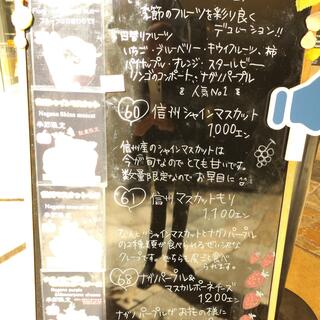 季節のフルーツを彩り良く
デコレーション!!
日替りフルーツ
いちご・ブルーベリー・キウイフルーツ、柿
パイナップル・オレンジ・スタールビー
リンゴのコンポート、ナガノパープル
人気No1
60 信州シャインマスカット
1000エン
信州産のシャインマスカットは
今が旬なのでとても甘いです。
数量限定なのでお早目に
61 信州マスカットもり
1,100エン
なんとシャインマスカットとナガノパープル
の2種類が食べられるぜいたくな
クレープです。どちらも皮ごと食べ
られます。
68 ナガノパープル&
マスカルポーネチーズ
1200エン
ナガノパープルがお花の様に
Nagano Shine muscat
Nagano purple